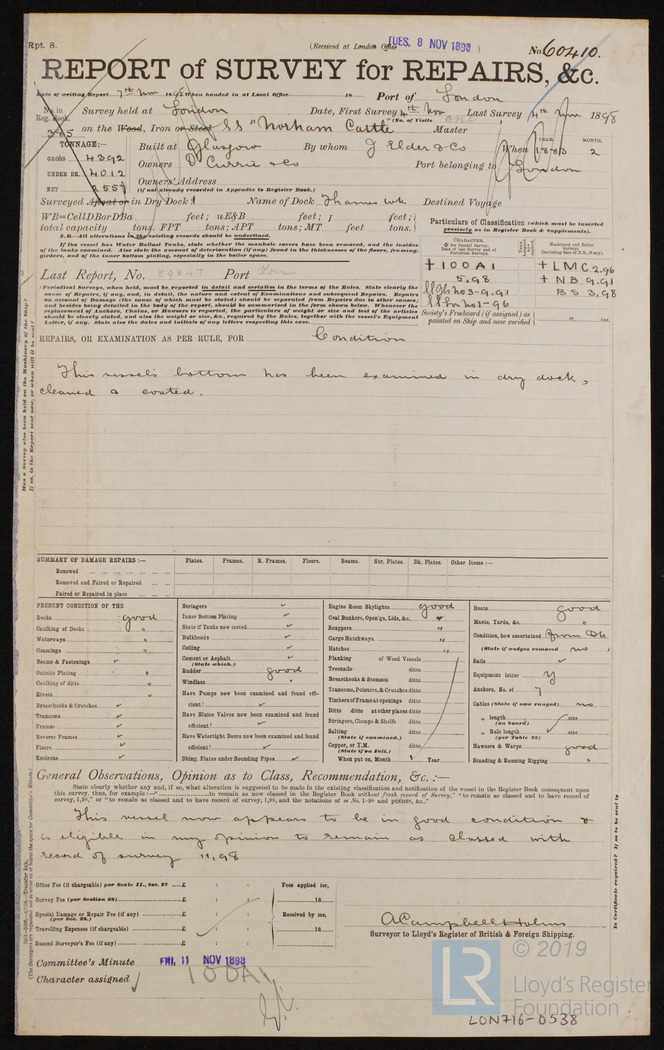 Rpt. 8.
(Received at London Office TUES, 8 NOV 1898 )
No. 60410.
REPORT of SURVEY for REPAIRS, &c.
Date of writing Report 7th Nov 18 When handed in at Local Office 18 Port of London
No. in Reg. Book. Survey held at London Date, First Survey 4th Nov Last Survey 4th Nov 1898
(No. of Visits one)
365 on the Wood, Iron or Steel SS "Norham Castle" Master
TONNAGE:— Built at Glasgow By whom J Elder & Co When 1883 2
YEAR. MONTH.
GROSS 4392 Owners D Currie & Co Port belonging to London
UNDER DK. 4012 Owners' Address
NET 2551 (if not already recorded in Appendix to Register Book.)
Surveyed Afloat or in Dry Dock? Name of Dock Thames Wk Destined Voyage
WB=CellDBorDBa feet; uE&B feet; f feet;
total capacity tons. FPT tons; APT tons; MT feet tons.
N.B.—All alterations in the existing records should be underlined.
If the vessel has Water Ballast Tanks, state whether the manhole covers have been removed, and the insides
of the tanks examined. Also state the amount of deterioration (if any) found in the thicknesses of the floors, framing,
girders, and of the inner bottom plating, especially in the boiler space.
Particulars of Classification (which must be inserted
precisely as in Register Book & Supplements).
CHARACTER,
Machinery and Boiler Surveys
(including date of N.B., if any).
Last Report, No. 59847 Port Lon
+100A1 +LMC 2.96
5,98 +NB 9.91
SS Gb No3-9.91 BS 3,98
SS Ln No1-96
(Periodical Surveys, when held, must be reported in detail and seriatim in the terms of the Rules. State clearly the
cause of Repairs, if any, and, in detail, the nature and extent of Examinations and subsequent Repairs. Repairs
on account of Damage (the cause of which must be stated) should be separated from Repairs due to other causes;
and besides being detailed in the body of the report, should be summarised in the form shown below. Whenever the
replacement of Anchors, Chains, or Hawsers is reported, the particulars of weight or size and test of the articles
should be clearly stated, and also the weight or size, &c., required by the Rules, together with the vessel's Equipment
Letter, if any. State also the dates and initials of any letters respecting this case.
Society's Freeboard (if assigned) as
painted on Ship and now verified ft. ins.
REPAIRS, OR EXAMINATION AS PER RULE, FOR Condition
This vessel's bottom has been examined in dry dock,
cleaned & coated.
SUMMARY OF DAMAGE REPAIRS:— Plates. Frames. R. Frames. Floors. Beams. Str. Plates. Dk. Plates. Other Items:—
Renewed
Removed and Faired or Repaired
Faired or Repaired in place
PRESENT CONDITION OF THE
Decks good
Caulking of Decks "
Waterways "
Comings "
Beams & Fastenings ✓
Outside Plating "
Caulking of ditto "
Rivets "
Breasthooks & Crutches ✓
Transoms ✓
Frames ✓
Reverse Frames ✓
Floors ✓
Keelsons ✓
Stringers ✓
Inner Bottom Plating ✓
State if Tanks now tested ✓
Bulkheads ✓
Ceiling ✓
Cement or Asphalt ✓
(State which.)
Rudder good
Windlass "
Have Pumps now been examined and found effi-
cient? ✓
Have Sluice Valves now been examined and found
efficient? ✓
Have Watertight Doors now been examined and found
efficient? ✓
Dblng. Plates under Sounding Pipes ✓
Engine Room Skylights good
Coal Bunkers, Open'gs, Lids, &c. "
Scuppers "
Cargo Hatchways "
Hatches "
Planking of Wood Vessels
Treenails ditto
Breasthooks & Stemson ditto
Transoms, Pointers, & Crutches ditto
Timbers of Frame at openings ditto
Ditto ditto at other places ditto
Stringers, Clamps & Shelfs ditto
Salting ditto
(State if examined.)
Copper, or Y.M. ditto
(State if on Felt.)
When put on, Month Year
Boats good
Masts, Yards, &c. "
Condition, how ascertained from Dk
(State if wedges removed no )
Sails ✓
Equipment letter Y
Anchors, No. of 7
Cables (State if now ranged) no
" length (on board) size
" Rule length (per Table 22) size
Hawsers & Warps good
Standing & Running Rigging "
General Observations, Opinion as to Class, Recommendation, &c. :—
State clearly whether any and, if so, what alteration is suggested to be made in the existing classification and notification of the vessel in the Register Book consequent upon
this survey, thus, for example:—" to remain as now classed in the Register Book without fresh record of Survey," "to remain as classed and to have record of
survey, 1,98," or "to remain as classed and to have record of survey, 1,98, and the notations of ss No. 1-98 and ptND98, &c."
This vessel now appears to be in good condition &
is eligible in my opinion to remain as classed with
record of survey 11,98
Office Fee (if chargeable) per Scale II., Sec. 27 £
Survey Fee (per Section 28) £
Special Damage or Repair Fee (if any) £
(per Sec. 28.)
Travelling Expenses (if chargeable) £
Second Surveyor's Fee (if any) £
Fees applied for,
18
Received by me,
18
A Campbell Holms
Surveyor to Lloyd's Register of British & Foreign Shipping.
Committee's Minute FRI, 11 NOV 1898
Character assigned 100A1
LR
© 2019
Lloyd's Register
Foundation
LON716-0538